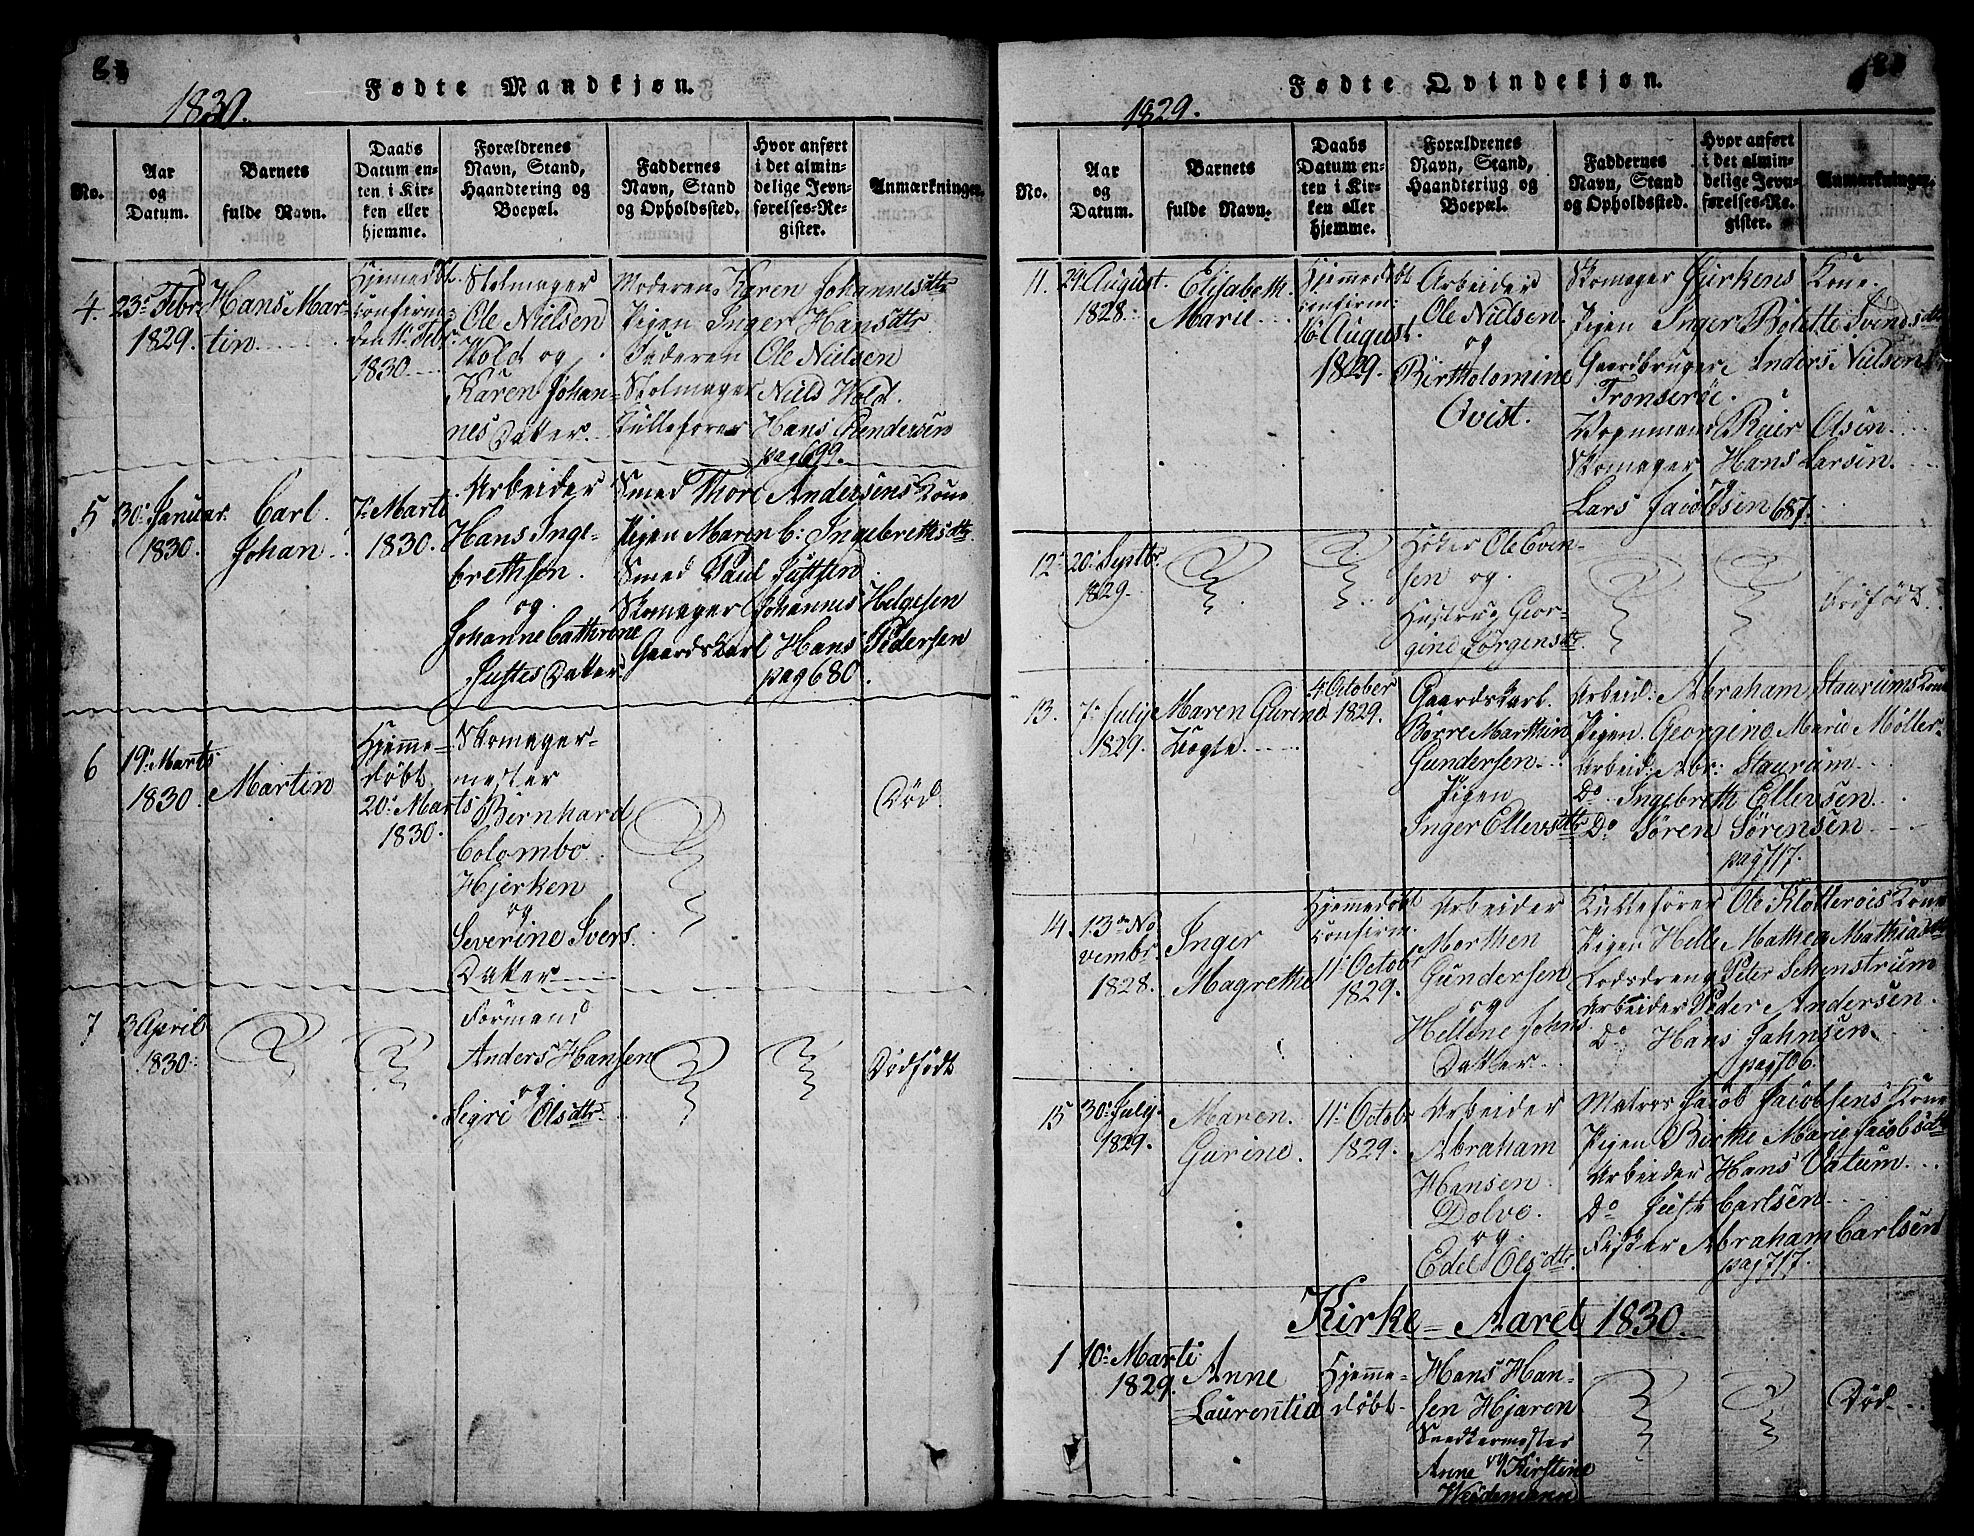 8
Fødte Mandkjøn.
1830.
No.
Aar
og
Datum.
Barnets
fulde Navn.
Daabs
Datum en-
ten i Kir-
ken eller
hjemme.
Forældrenes
Navn, Stand,
Haandtering og
Boepæl.
Faddernes
Navn, Stand
og Opholdssted.
Hvor anført
i det almin-
delige Jevn-
førelses-Re-
gister.
Anmærkninger.
4. 23de Febr
1829.
Hans Mar-
tin
Hjemedøbt.
Confirm:
den 11te Febr
1830.
Stolmager
Ole Nielsen
Wold og
Karen Johan-
nes Datter.
Moderen Karen Johannesdtr
Pigen Inger Hansdtr
Faderen Ole Nielsen
Stolmager Niels Wold.
Kullefører Hans Gundersen
pag 699.
5 30te Januar.
1830.
Carl
Johan
7de Marti
1830.
Arbeider
Hans Inge-
brethsen.
og
Johanne Cathrine
Justes Datter.
Smed Thore Andersens Kone
Pigen Maren C: Ingebretsdtr
Smed Paul Justsen
Skomager Johannes Helgesen
Gaardskarl Hans Pedersen
pag 680.
6 19de Marts
1830.
Martin
Hjemme-
døbt
20de Marts
1830.
Skomager-
mester
Bernhard
Colombo
Hjerken
og
Severine Ivers
Datter
Død
7 3 April
1830.
Formand
Anders Hansen
og
Sigri Olsdtr
Dødfødt
Fødte Qvindekjøn.
1829.
No.
Aar
og
Datum.
Barnets
fulde Navn.
Daabs
Datum en-
ten i Kir-
ken eller
hjemme.
Forældrenes
Navn, Stand,
Haandtering og
Boepæl.
Faddernes
Navn, Stand
og Opholdssted.
Hvor anført
i det almin-
delige Jevn-
førelses-Re-
gister.
Anmærkninger.
11. 29 August
1828.
Elisabeth
Marie
Hjemmedøbt
Confirm:
16 August
1829.
Arbeider
Ole Nielsen
og
Birtholomine
Qvist.
Skomager Hjerkens Kone
Pigen Inger Bolette Svendsdtr
Gaardbruger Anders Nielsen
Tromserøe.
Vognmand Reier Olsen
Skomager Hans Larsen
og
Lars Jacobsen 687.
12 20de Septbr
1829.
Høker Ole Even-
sen og
Hustrue Geor-
gine Jørgensdtr
Dødfødt
13. 7de July
1829.
Maren Gurine
4 October
1829.
Gaardskarl
Børre Marthin
Gundersen
Pigen
Inger Ellevsdtr
Arbeid: Abraham Staurums Kone
Pigen Georgine Marie Møller
Arbeid: Abr: Staurum
Do Ingebreth Ellevsen
Do Søren Sørensen
pag 717.
14. 13de No
vembr
1828.
Inger
Magrethe
Hjemmedøbt
Confirm.
11te Octobr
1829.
Arbeider
Morthen
Gundersen
og
Hellene Johns
Datter
Kullefører Ole Klotterøes Kone
Pigen Helle Mathea Mathiasdtr
Lodsdreng Peter Schenstrøm
Arbeider Peder Andersen
Do Hans Jahnsen
pag 706.
15 30te July
1829.
Maren
Gurine.
11te Octobr
1829.
Arbeider
Abraham
Hansen
Dolve.
og
Edel Olsdtr
Matros Jacob Jacobsens Kone
Pigen Birthe Marie Jacobsdtr
Arbeider Hans Vatum
Do Just Carlsen
Fisker Abraham Carlsen
pag 717.
Kirke-Aaret 1830.
1 10de Marti
1829.
Anne
Laurentia
Hjemme-
døbt
Hans Han-
sen Hjaren
Snedkermester
og
Anne Kirstine
Weidemann
Død